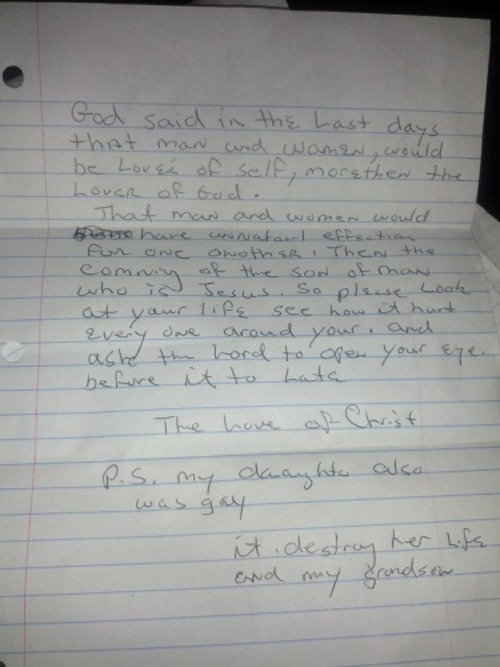 God said in the Last days
that man and women, would
be Lover of self, morethen the
Lover of God.
That man and women would
have unnataul effection
for one another. Then the
comming of the son of man
who is Jesus. So please Look
at your life see how it hurt
every one aroud your. and
ask the Lord to open your eye.
before it to Late
The Love of Christ
P.S. my daughte also
was gay
it. destroy her Life
and my grandson